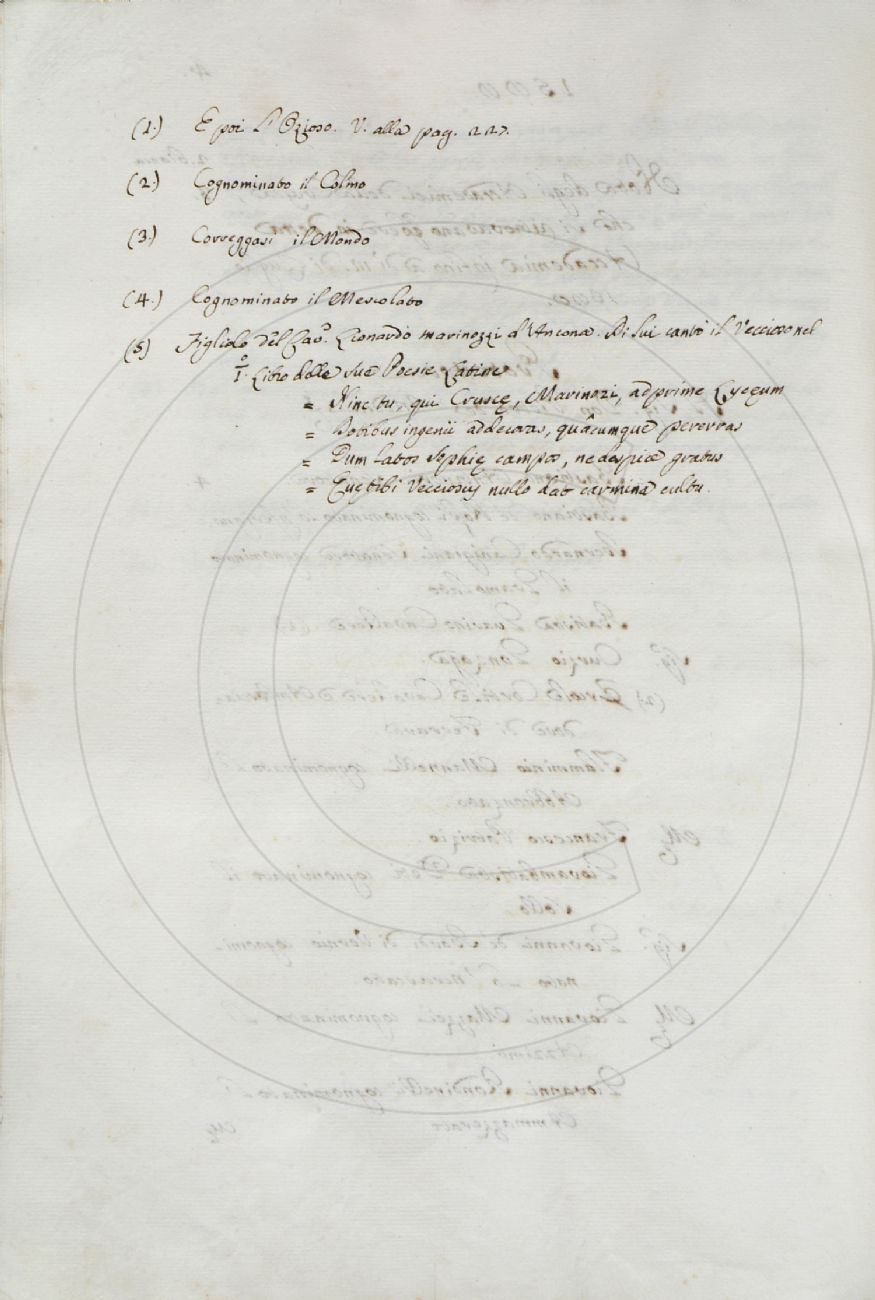 (1.) E poi L'Ozioso. V. alla pag. 227.
(2.) Cognominato il Colmo
(3.) Correggasi il Mondo
(4.) Cognominato il Mescolato
(5) Figliolo del Cav.º Lionardo Marinozzi d'Ancona. Di lui cantò il Vecciosonel
I.º Libro delle sue Poesie Latine
= Hinc tu, qui Cruscę, Marinozi, adprime Lycęum
= Dotibus ingenii addecoras, quâcumque pererras
= Dum latos Sophię campos, ne despice gratus
= Quę tibi Vecciosus nullo dat carmina cultu.